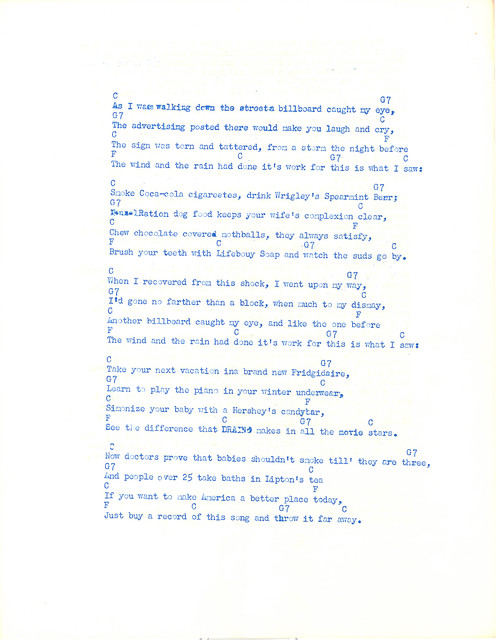 C G7
As I was walking down the streeta billboard caught my eye,
G7 C
The advertising posted there would make you laugh and cry,
C F
The sign was torn and tattered, from a storm the night before
F C G7 C
The wind and the rain had done it's work for this is what I saw:
C G7
Smoke Coca-cola cigareetes, drink Wrigley's Spearmint Beer;
G7 C
Ken-lRation dog food keeps your wife's complexion clear,
C F
Chew chocolate covered mothballs, they always satisfy,
F C G7 C
Brush your teeth with Lifebouy Soap and watch the suds go by.
C G7
When I recovered from this shock, I went upon my way,
G7 C
I'd gone no farther than a block, when much to my dismay,
C F
Another billboard caught my eye, and like the one before
F C G7 C
The wind and the rain had done it's work for this is what I saw:
C G7
Take your next vacation ina brand new Fridgidaire,
G7 C
Learn to play the piano in your winter underwear,
C F
Simonize your baby with a Hershey's candybar,
F C G7 C
See the difference that DRAINO makes in all the movie stars.
C G7
Now doctors prove that babies shouldn't smoke till' they are three,
G7 C
And people over 25 take baths in Lipton's tea
C F
If you want to make America a better place today,
F C G7 C
Just buy a record of this song and throw it far away.